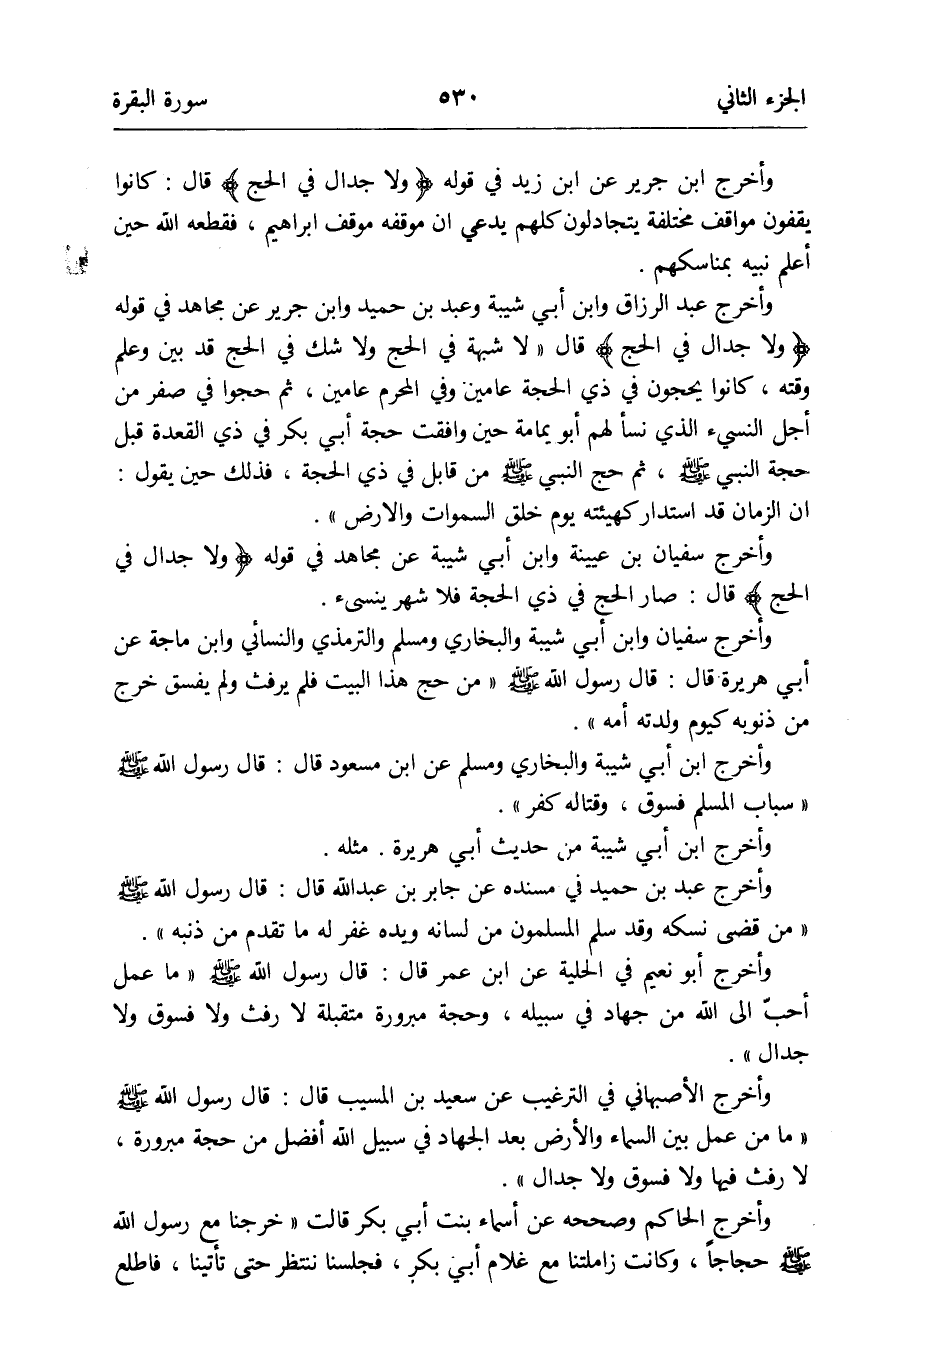 الجزء الثاني ٥٣٠ سورة البقرة
وأخرج ابن جرير عن ابن زيد في قوله ﴿ ولا جدال في الحج ﴾ قال : كانوا
يقفون مواقف مختلفة يتجادلون كلهم يدعي ان موقفه موقف ابراهيم ، فقطعه الله حين
أعلم نبيه بمناسكهم .
وأخرج عبد الرزاق وابن أبي شيبة وعبد بن حميد وابن جرير عن مجاهد في قوله
﴿ ولا جدال في الحج ﴾ قال « لا شبهة في الحج ولا شك في الحج قد بين وعلم
وقته ، كانوا يحجون في ذي الحجة عامين وفي المحرم عامين ، ثم حجوا في صفر من
أجل النسيء الذي نسأ لهم أبو يمامة حين وافقت حجة أبي بكر في ذي القعدة قبل
حجة النبي ﷺ ، ثم حج النبي ﷺ من قابل في ذي الحجة ، فذلك حين يقول :
ان الزمان قد استدار كهيئته يوم خلق السموات والارض » .
وأخرج سفيان بن عيينة وابن أبي شيبة عن مجاهد في قوله ﴿ ولا جدال في
الحج ﴾ قال : صار الحج في ذي الحجة فلا شهر ينسىء .
وأخرج سفيان وابن أبي شيبة والبخاري ومسلم والترمذي والنسائي وابن ماجة عن
أبي هريرة قال : قال رسول الله ﷺ « من حج هذا البيت فلم يرفث ولم يفسق خرج
من ذنوبه كيوم ولدته أمه » .
وأخرج ابن أبي شيبة والبخاري ومسلم عن ابن مسعود قال : قال رسول الله ﷺ
« سباب المسلم فسوق ، وقتاله كفر » .
وأخرج ابن أبي شيبة من حديث أبي هريرة . مثله .
وأخرج عبد بن حميد في مسنده عن جابر بن عبدالله قال : قال رسول الله ﷺ
« من قضى نسكه وقد سلم المسلمون من لسانه ويده غفر له ما تقدم من ذنبه » .
وأخرج أبو نعيم في الحلية عن ابن عمر قال : قال رسول الله ﷺ « ما عمل
أحبّ الى الله من جهاد في سبيله ، وحجة مبرورة متقبلة لا رفث ولا فسوق ولا
جدال » .
وأخرج الأصبهاني في الترغيب عن سعيد بن المسيب قال : قال رسول الله ﷺ
« ما من عمل بين السماء والأرض بعد الجهاد في سبيل الله أفضل من حجة مبرورة ،
لا رفث فيها ولا فسوق ولا جدال » .
وأخرج الحاكم وصححه عن أسماء بنت أبي بكر قالت « خرجنا مع رسول الله
ﷺ حجاجاً ، وكانت زاملتنا مع غلام أبي بكر ، فجلسنا ننتظر حتى تأتينا ، فاطلع